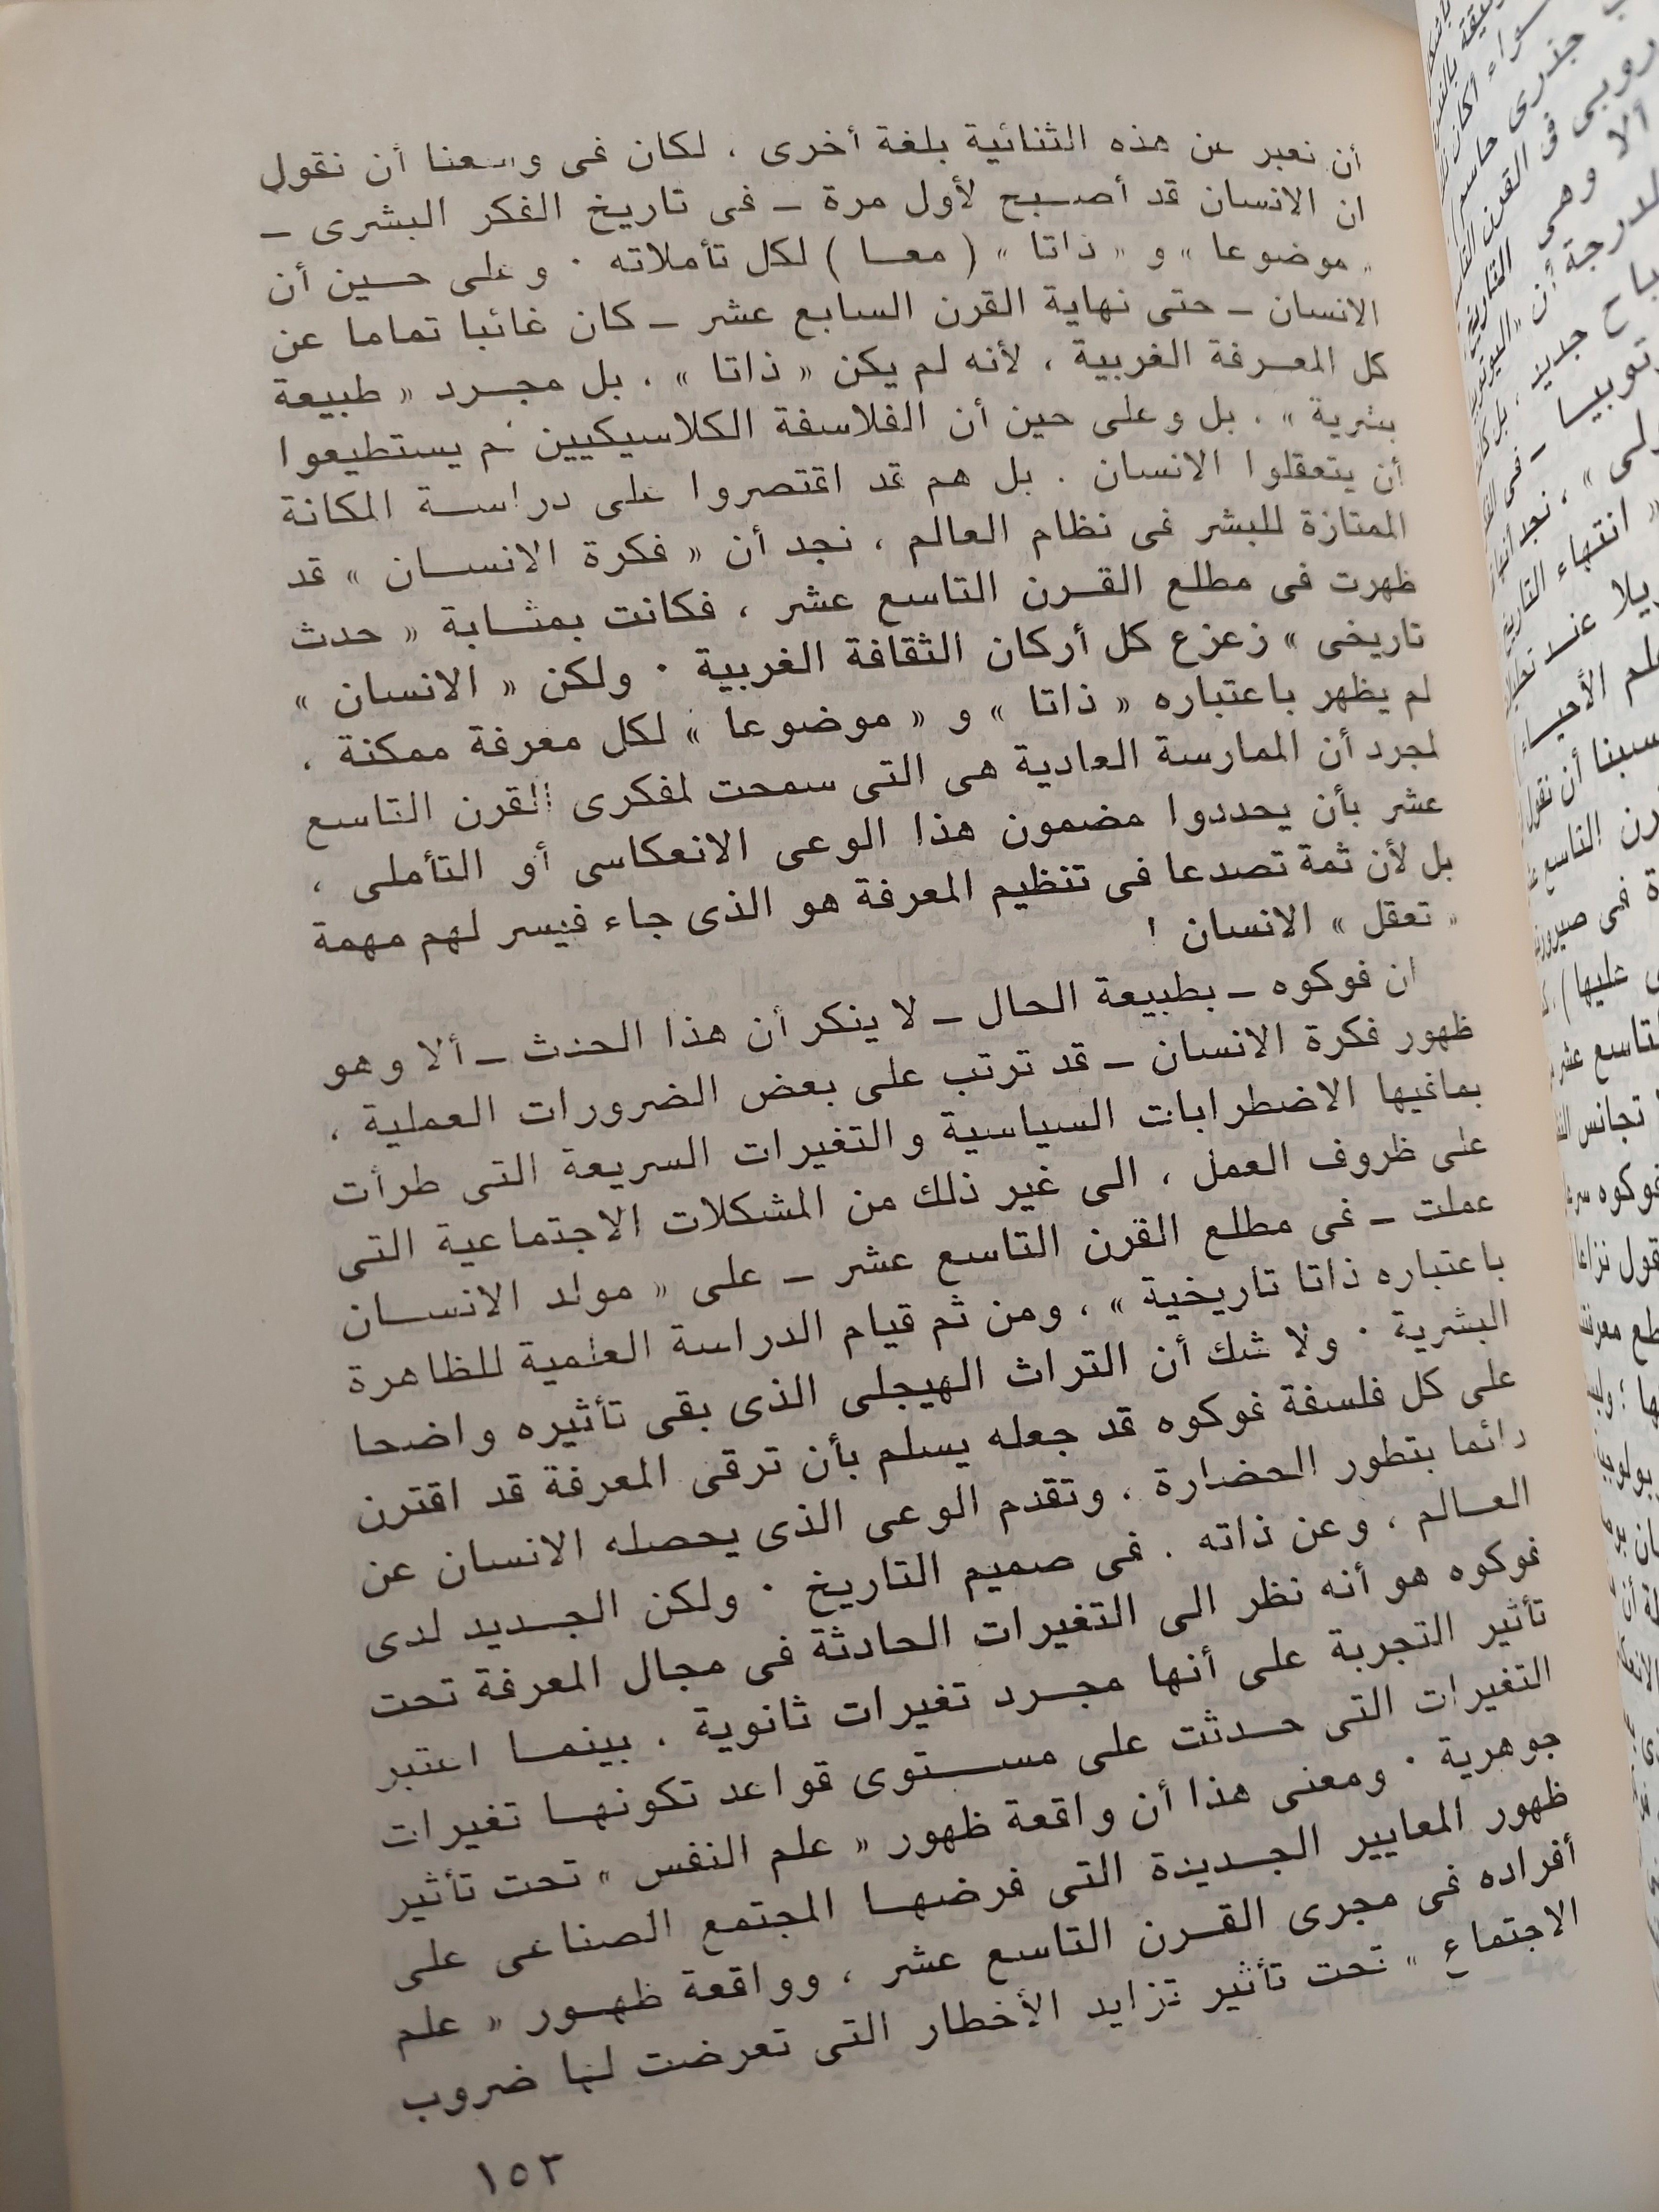 أن نعبر عن هذه الثنائية بلغة أخرى ، لكان فى وسعنا أن نقول
ان الانسان قد أصبح لأول مرة – فى تاريخ الفكر البشرى –
« موضوعا » و « ذاتا » ( معا ) لكل تأملاته · وعلى حين أن
الانسان – حتى نهاية القرن السابع عشر – كان غائبا تماما عن
كل المعرفة الغربية ، لأنه لم يكن « ذاتا » ، بل مجرد « طبيعة
بشرية » ، بل وعلى حين أن الفلاسفة الكلاسيكيين لم يستطيعوا
أن يتعقلوا الانسان . بل هم قد اقتصروا على دراسة المكانة
الممتازة للبشر فى نظام العالم ، نجد أن « فكرة الانسان » قد
ظهرت فى مطلع القرن التاسع عشر ، فكانت بمثابة « حدث
تاريخى » زعزع كل أركان الثقافة الغربية · ولكن « الانسان »
لم يظهر باعتباره « ذاتا » و « موضوعا » لكل معرفة ممكنة ،
لمجرد أن الممارسة العادية هى التى سمحت لمفكرى القرن التاسع
عشر بأن يحددوا مضمون هذا الوعى الانعكاسى أو التأملى ،
بل لأن ثمة تصدعا فى تنظيم المعرفة هو الذى جاء فيسر لهم مهمة
« تعقل » الانسان !
ان فوكوه – بطبيعة الحال – لا ينكر أن هذا الحدث – ألا وهو
ظهور فكرة الانسان – قد ترتب على بعض الضرورات العملية ،
بمافيها الاضطرابات السياسية والتغيرات السريعة التى طرأت
على ظروف العمل ، الى غير ذلك من المشكلات الاجتماعية التى
عملت – فى مطلع القرن التاسع عشر – على « مولد الانسان
باعتباره ذاتا تاريخية » ، ومن ثم قيام الدراسة العلمية للظاهرة
البشرية · ولا شك أن التراث الهيجلى الذى بقى تأثيره واضحا
على كل فلسفة فوكوه قد جعله يسلم بأن ترقى المعرفة قد اقترن
دائما بتطور الحضارة ، وتقدم الوعى الذى يحصله الانسان عن
العالم ، وعن ذاته . فى صميم التاريخ · ولكن الجديد لدى
فوكوه هو أنه نظر الى التغيرات الحادثة فى مجال المعرفة تحت
تأثير التجربة على أنها مجرد تغيرات ثانوية . بينما اعتبر
التغيرات التى حدثت على مستوى قواعد تكونها تغيرات
جوهرية · ومعنى هذا أن واقعة ظهور « علم النفس » تحت تأثير
ظهور المعايير الجديدة التى فرضها المجتمع الصناعى على
أفراده فى مجرى القرن التاسع عشر ، وواقعة ظهور « علم
الاجتماع » تحت تأثير تزايد الأخطار التى تعرضت لها ضروب
١٥٣